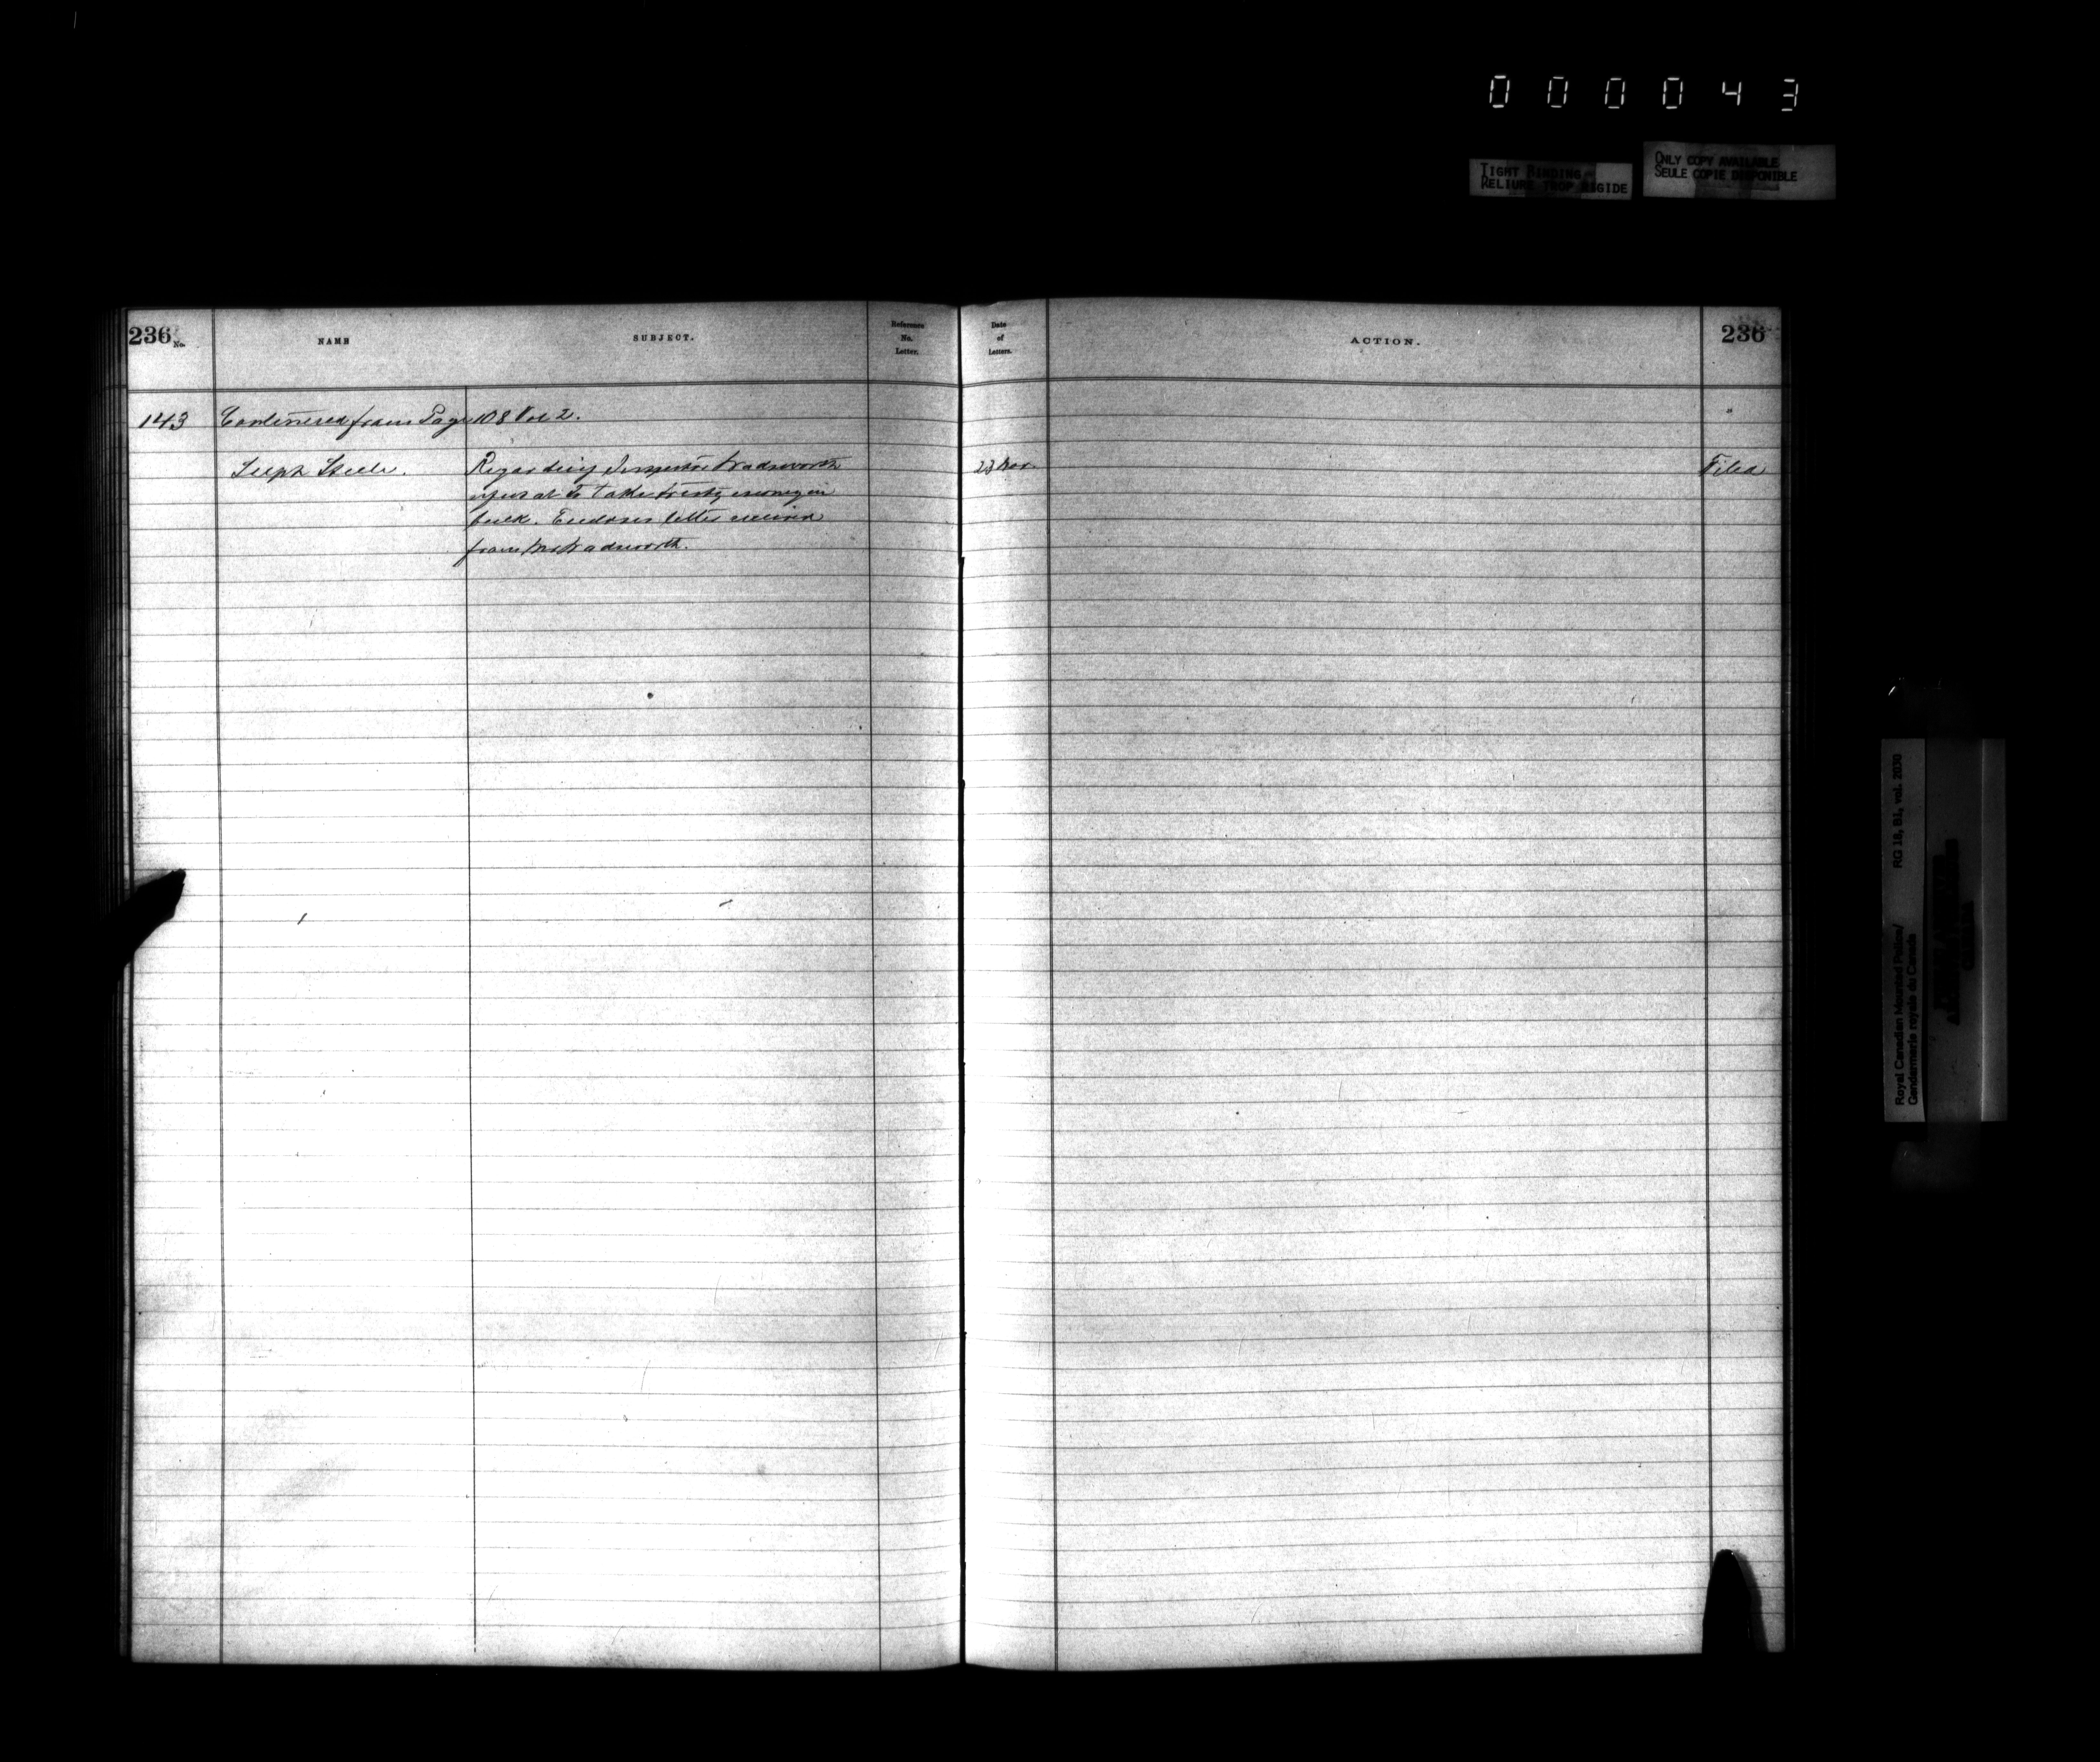 000043
TIGHT BINDING
RELIURE TROP RIGIDE
ONLY COPY AVAILABLE
SEULE COPIE DISPONIBLE
236 No. NAME SUBJECT. Reference No. Letter. Date of Letters. ACTION. 236
143 Continued from Page 108 Vol 2.
Supt Steele. Regarding Inspector Wadsworth 23 Nov. Filed
refusal to take treaty money in
bulk. Encloses letter received
from Mr Wadsworth.
Royal Canadian Mounted Police/ RG 18, B1, vol. 2030
Gendarmerie royale du Canada